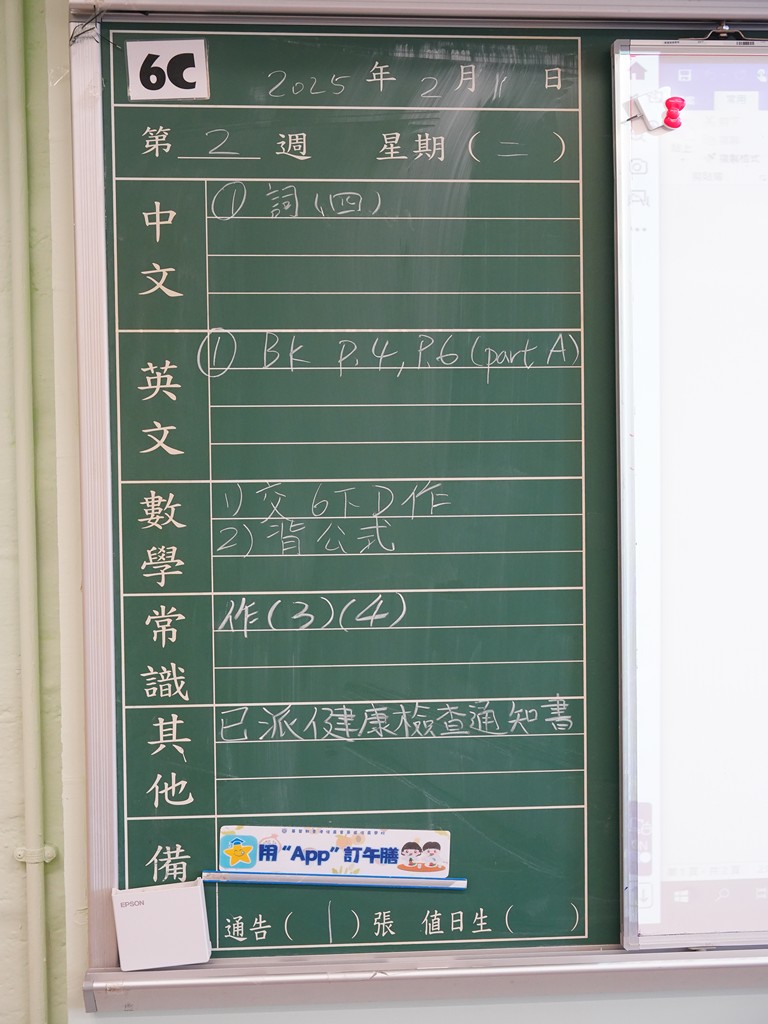 6C
2025 年 2 月 11 日
第 2 週 星期 ( 二 )
中文
① 詞(四)
英文
① BK P.4, P.6 (part A)
數學
1) 交 6下D作
2) 背公式
常識
作(3)(4)
其他
已派健康檢查通知書
備
用 “App” 訂午膳
EPSON
通告 ( 1 ) 張 值日生 ( )